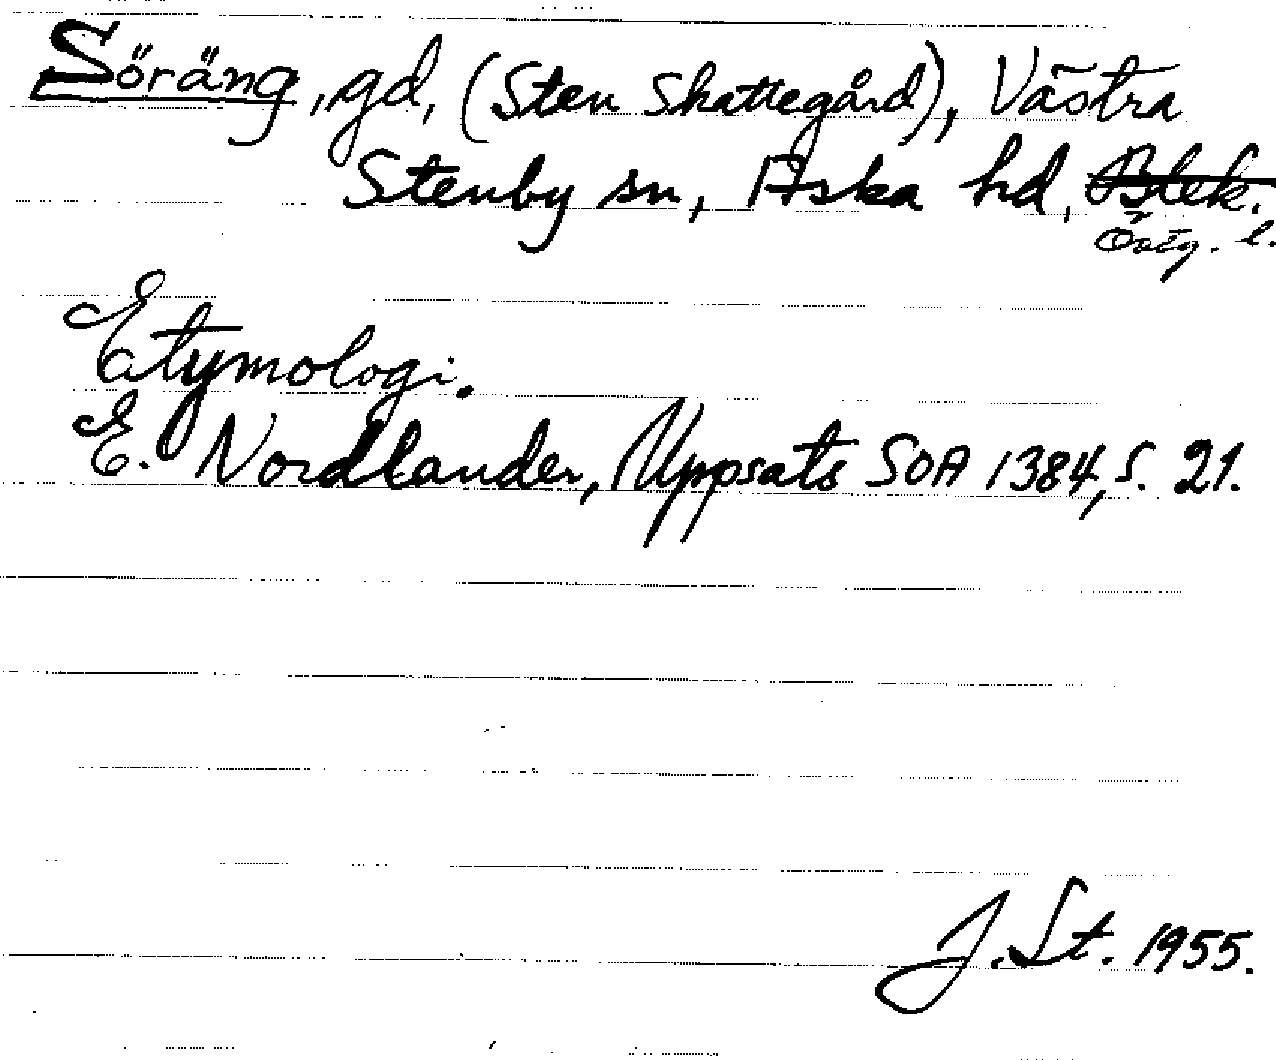 Söräng, gd, (Sten Skattegård), Västra
Stenby sn, Aska hd, Blek.
Östg. l.
Etymologi.
E. Nordlander, Uppsats SOA 1384, s. 21.
J. St. 1955.